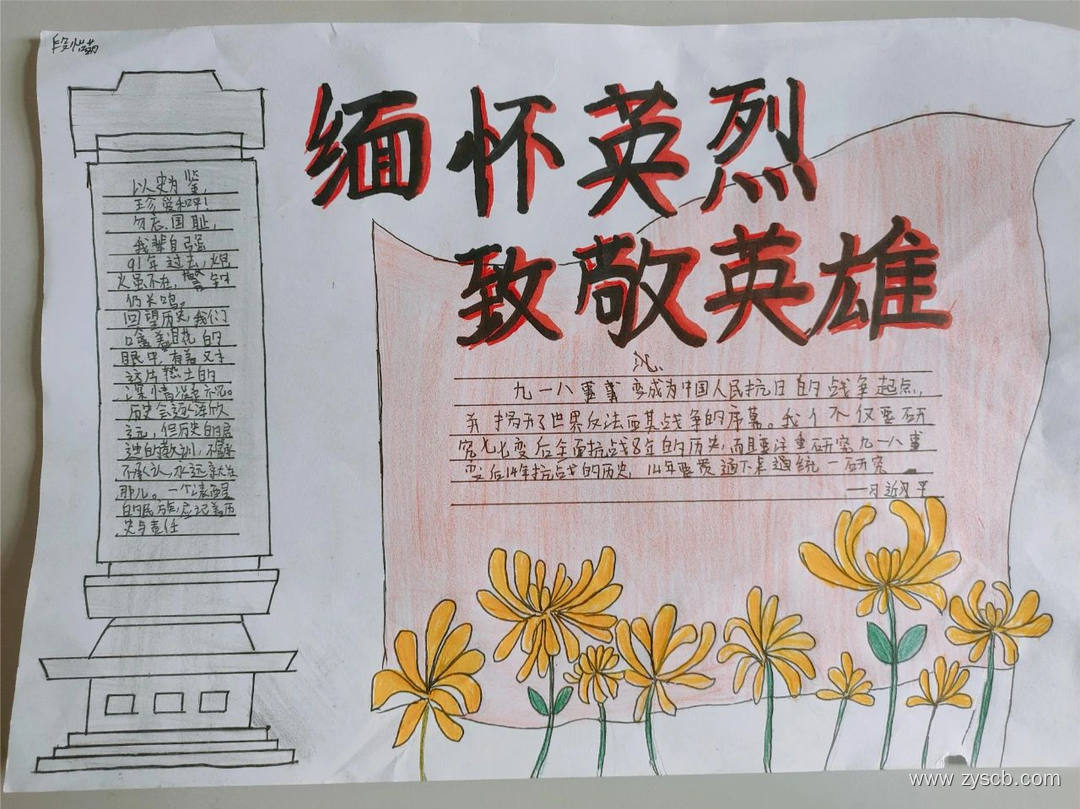 缅怀英烈
致敬英雄
以史为鉴,
珍爱和平!
勿忘国耻,
我辈自强
91年过去,炮
火虽不在,警钟
仍长鸣。
回望历史,我们
噙着泪花的
眼中,有着对
这片热土的
深情
历史会逐渐
远,但历史的
的教训,不
不承认,永远
那儿。一个
的民族,应记着历
史与责任
沉
九一八事变成为中国人民抗日的战争起点,
并揭开了世界反法西其战争的序幕。我个不仅要研
究七七变后全面抗战8年的历史,而且要注重研究九一八事
变后14年抗战的历史,14年要贯通下来通统一研究
——习近平
www.zyscb.com